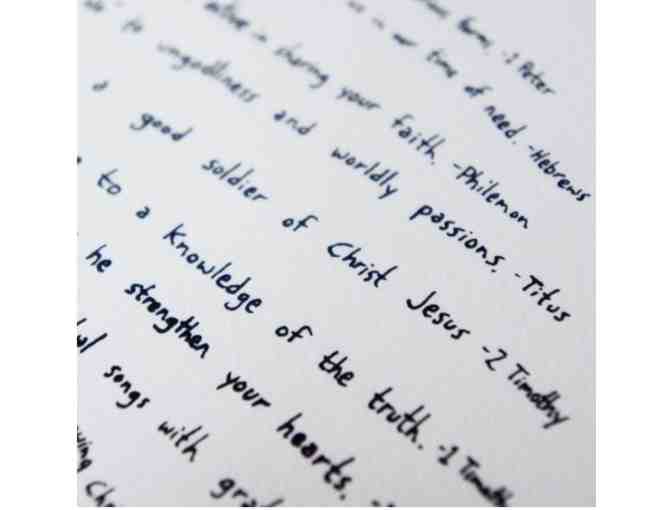 forms. -1 Peter
in our time of need. -Hebrews
active in sharing your faith. -Philemon
to ungodliness and worldly passions. -Titus
a good soldier of Christ Jesus -2 Timothy
to a knowledge of the truth. -1 Timoth
he strengthen your hearts. -
ul songs with gra
ving Chr